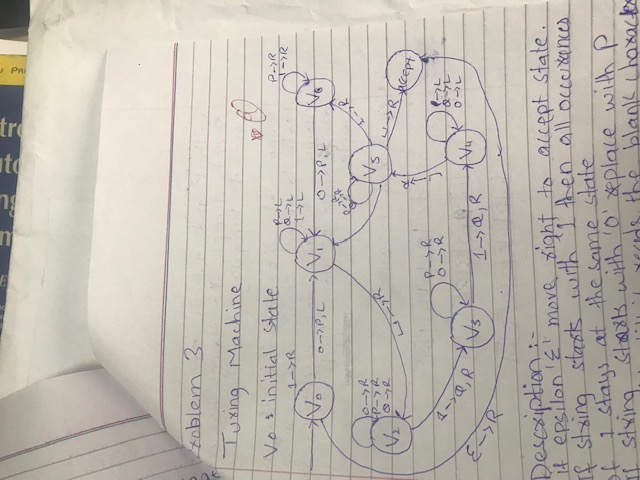 Problem 3
Turing Machine
V0 : initial state
1→R
V0
0→P,L
V1
P→L
Q→L
1→L
0→P,L
V6
P→R
1→R
V2
0→R
P→R
Q→R
⊔→R
V5
1→R
⊔→R
accept
1→Q,R
V3
P→R
0→R
1→Q,R
V4
P→L
Q→L
0→L
ε→R
Description :-
if epsilon 'ε' move right to accept state.
If string starts with '1 then all occurences
of 1 stays at the same state
If string starts with '0' replace with P
reads the blank character